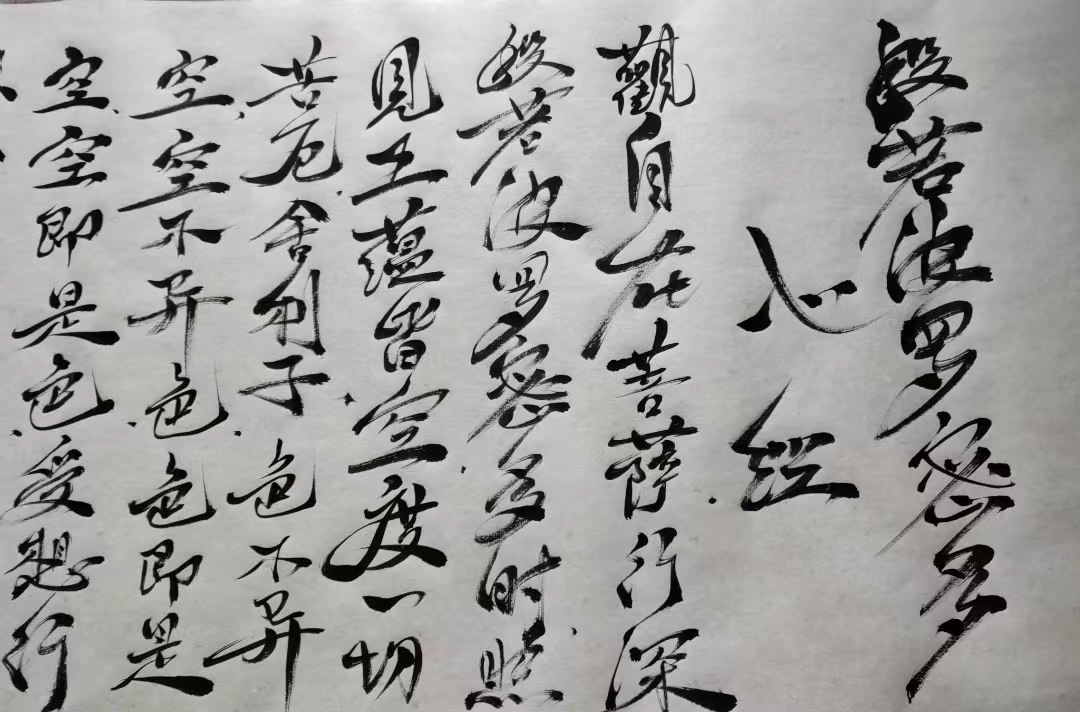 般若波罗密多
心经
觀自在菩薩行深
般若波罗密多时照
見五蕴皆空度一切
苦厄舍利子色不异
空空不异色色即是
空空即是色受想行